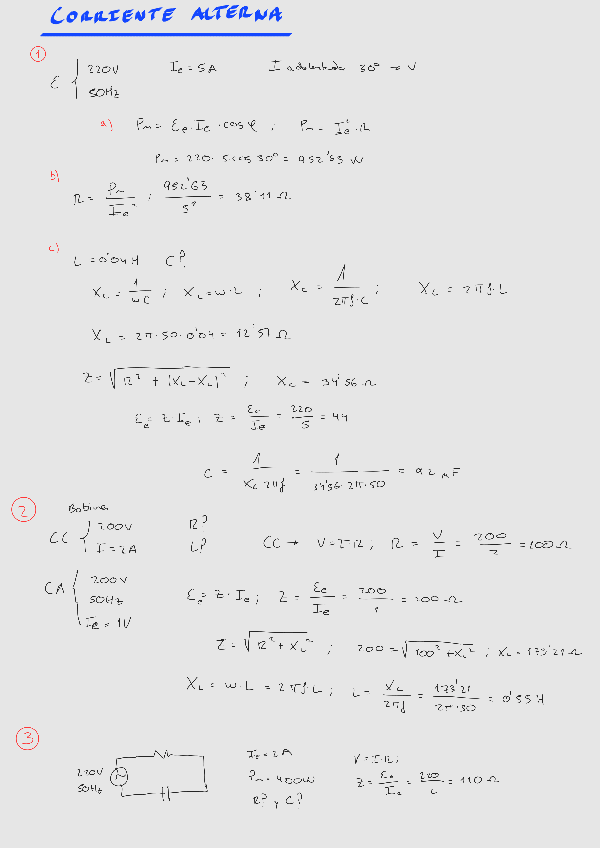 CORRIENTE ALTERNA
1
ε { 220V Ie = 5A I adelantada 30° → V
50Hz
a) Pm = Ee · Ie · cos φ ; Pm = Ie² · R
Pm = 220 · 5 · cos 30° = 952'63 W
b) R = Pm / Ie² ; 952'63 / 5² = 38'11 Ω
c) L = 0'04H C?
Xc = 1 / wC ; XL = w·L ; Xc = 1 / 2πf·C ; XL = 2πf·L
XL = 2π·50·0'04 = 12'57 Ω
Z = √R² + (XL - Xc)² ; Xc = 34'56 Ω
Ee = Z·Ie ; Z = Ee / Ie = 220 / 5 = 44
C = 1 / Xc 2πf = 1 / 34'56·2π·50 = 92 μF
2 Bobina
CC { 200V R?
I = 2A L? CC → V = I·R ; R = V / I = 200 / 2 = 100 Ω
CA { 200V
50Hz Ee = Z·Ie ; Z = Ee / Ie = 200 / 1 = 200 Ω
Ie = 1V
Z = √R² + XL² ; 200 = √100² + XL² ; XL = 173'21 Ω
XL = w·L = 2πf·L ; L = XL / 2πf = 173'21 / 2π·50 = 0'55 H
3
220V
50Hz
Ie = 2A V = I·R ;
Pm = 400W Z = Ee / Ie = 220 / 2 = 110 Ω
R? y C?